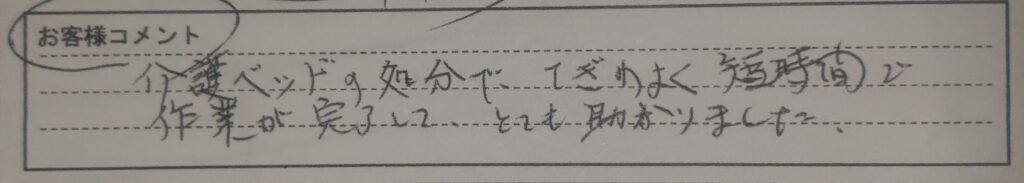 お客様コメント
介護ベッドの処分で、てぎわよく短時間で
作業が完了して、とても助かりました。